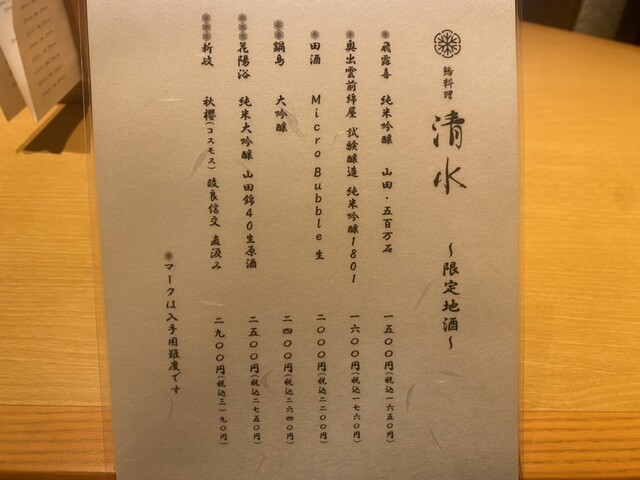 鶏料理 清水
～限定地酒～
飛露喜 純米吟醸 山田・五百万石 一五〇〇円(税込一六五〇円)
奥出雲前綿屋 試験醸造 純米吟醸1801 一六〇〇円(税込一七六〇円)
田酒 Micro Bubble 生 二〇〇〇円(税込二二〇〇円)
鍋島 大吟醸 二四〇〇円(税込二六四〇円)
花陽浴 純米大吟醸 山田錦40生原酒 二五〇〇円(税込二七五〇円)
新政 秋櫻(コスモス) 改良信交 直汲み 二九〇〇円(税込三一九〇円)
マークは入手困難度です